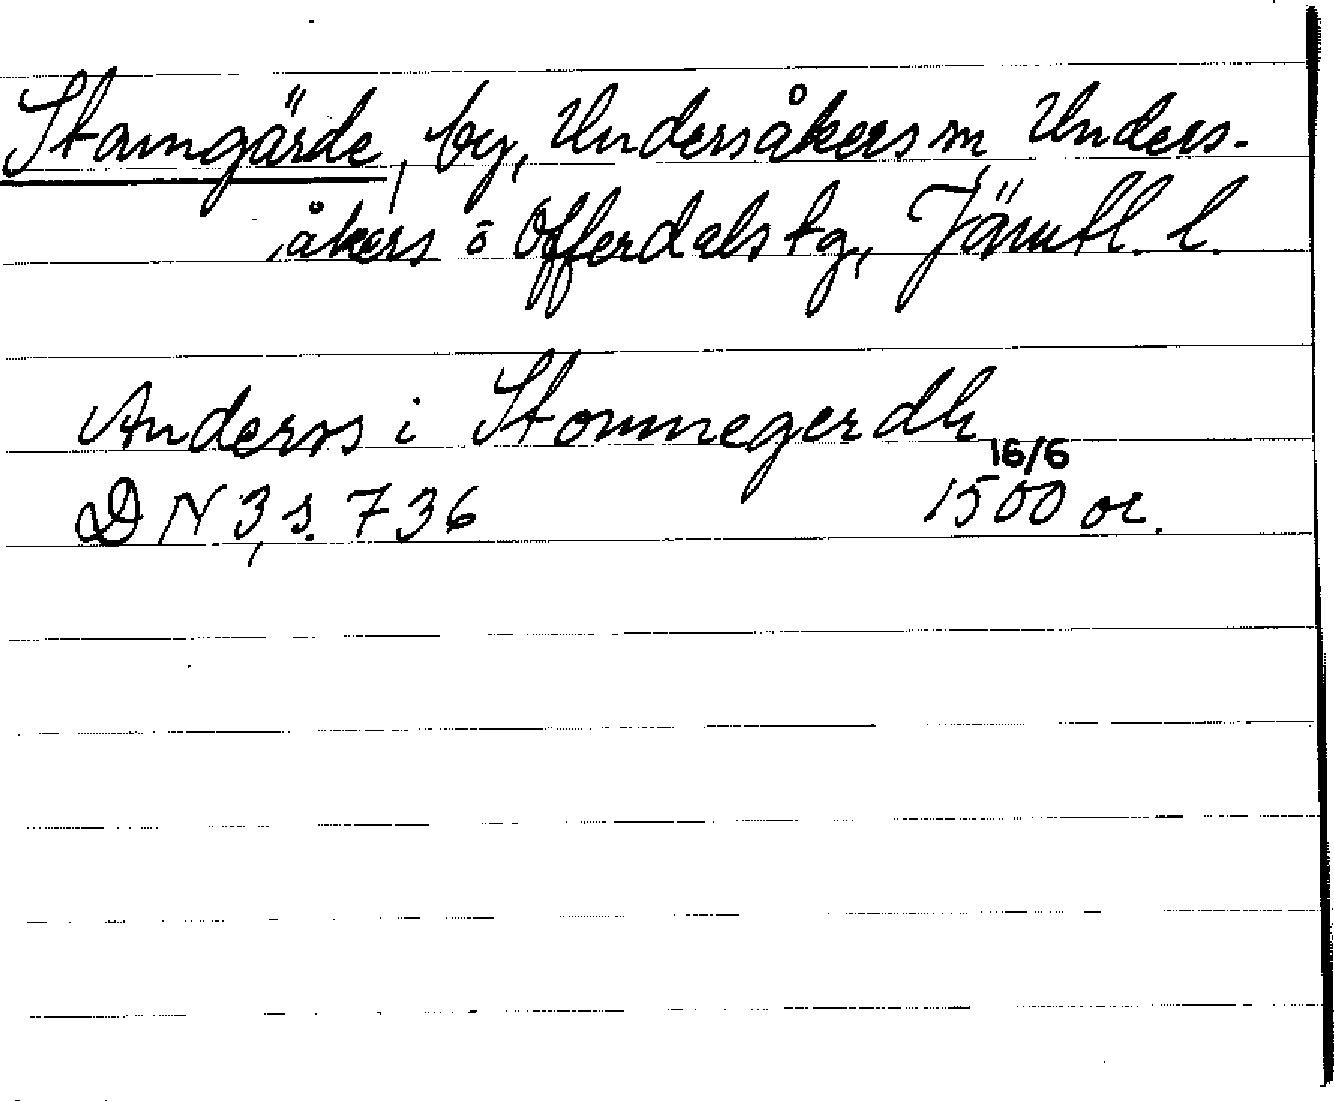 Stamgärde, by, Undersåkers sn, Unders-
åkers o Offerdals tg, Jämtl. l.
Anderss i Stommegerdh
16/6
DN 3, s. 736 1500 or.